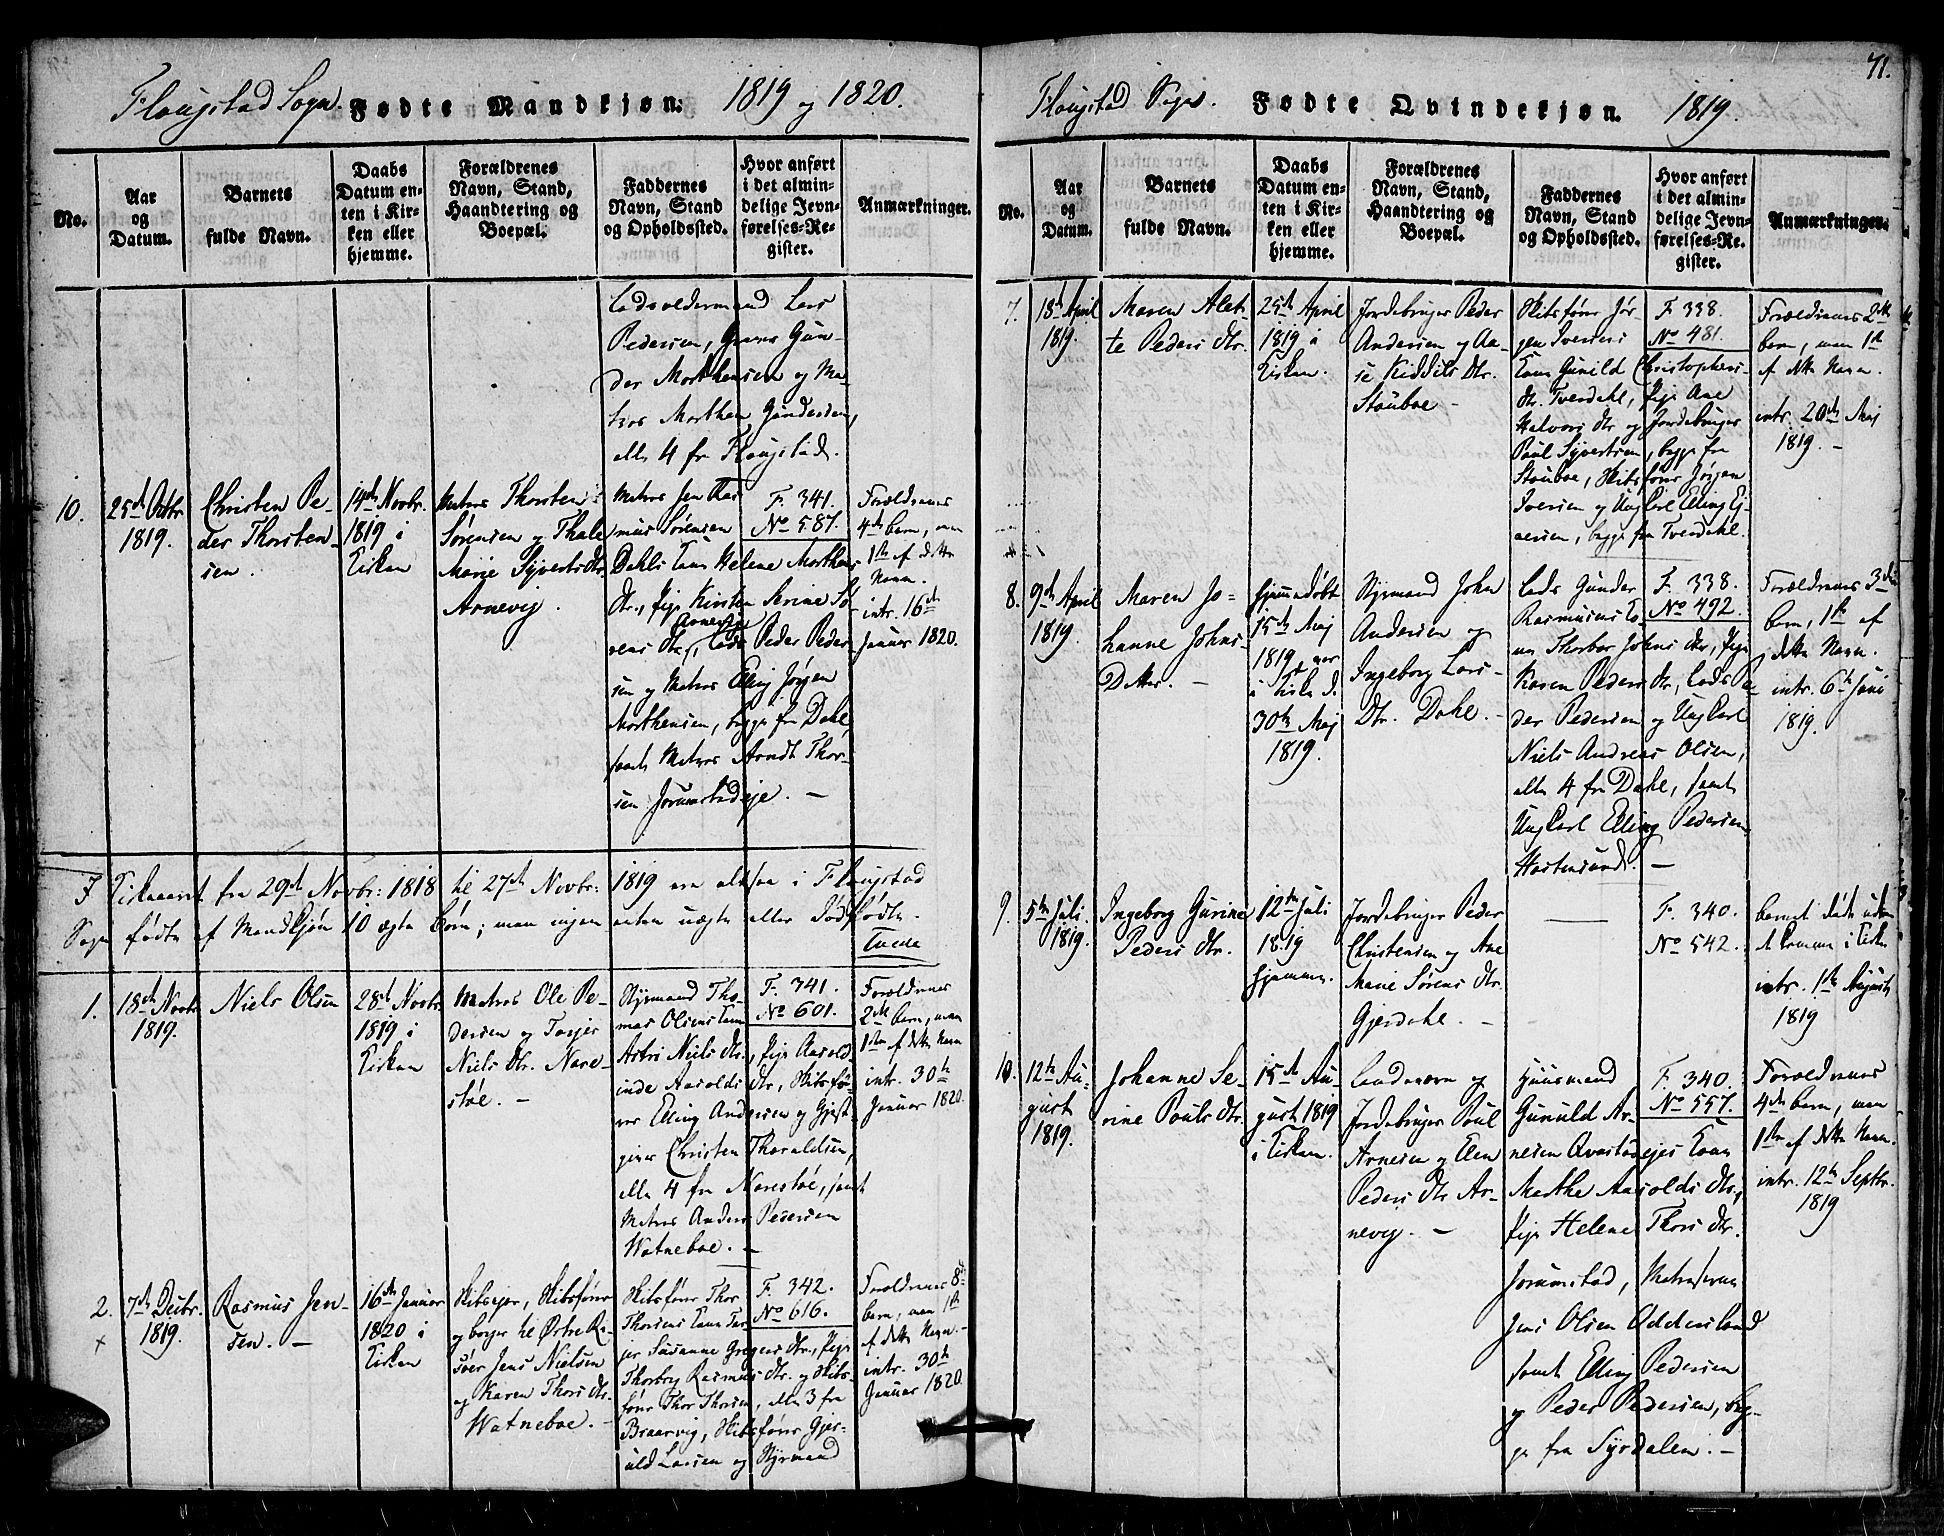 Flougstad Sogn. Fødte Mandkjøn: 1819 og 1820.
No.
Aar
og
Datum.
Barnets
fulde Navn.
Daabs
Datum en-
ten i Kir-
ken eller
hjemme.
Forældrenes
Navn, Stand,
Haandtering og
Boepæl.
Faddernes
Navn, Stand
og Opholdssted.
Hvor anført
i det almin-
delige Jevn-
førelses-Re-
gister.
Anmærkninger.
Ladsoldermand Lars
Pedersen, Gunne Gun-
der Morthensen og Ma-
tros Morthen Gundersen,
alle 4 fra Flougstad.
10.
25de Octbr
1819.
Christen Pe-
der Thorsten-
sen.
14de Novbr.
1819 i
Kirken
Matros Thorsten
Sørensen og Thale
Marie Syvertsdtr
Arnevig.
Matros Jen Ras
mus Sørensen
Dahls Kone Helene Morthens
dtr., Pige Kirsten Serine Sø-
rens dtr Arnevig, Lods Peder Peder
sen og Matros Elling Jørgen
Morthensen, begge fra Dahl,
samt Matros Arndt Thor-
sen Jorunstadeje. —
F. 341.
No 587.
Forældrenes
4de barn, men
1ste af dette
Navn.
intr. 16de
Januar 1820.
I Kirkeaaret fra 29de Novbr: 1818 til 27de Novbr: 1819 ere altsaa i Flougstad
Sogn fødte af Mandkjøn 10 ægte Børn; men ingen enten uægte eller dødfødte.
Tuede
1.
18de Novbr
1819.
Niels Olsen
28de Novbr.
1819 i
Kirken
Matros Ole Pe-
dersen og Tarjer
Niels dtr. Nare-
støe. —
Styrmand Tho-
mas Olsens Kone
Astri Niels dtr., Pige Aasold
inde Aasolds dtr, Skibsfø-
rer Elling Andersen og Gjest
giver Christen Thoraldsen,
alle 4 fra Narestøe, samt
Matros Anders Pedersen
Watneboe. —
F. 341.
No 601.
Forældrenes
2det barn, men
1ste af dette Navn
intr. 30te
Januar 1820.
2.
+
7de Decbr.
1819.
Rasmus Jen-
sen. —
16de Januar
1820 i
Kirken
Skibsejer, Skibsfører
og borger til Østre Ri-
søer Jens Nielsen
og Karen Thors dtr.
Watneboe. —
Skibsfører Thor
Thorsens Kone Tar-
jer Susanne Gregers dtr., Pige
Thorborg Rasmus dtr. og Skibs-
fører Thor Thorsen, alle 3 fra
Braarvig, Skibsfører Gjer-
uld Larsen og Styrmand
F. 342.
No 616.
Forældrenes 8de
barn, men 1ste
af dette Navn. —
intr. 30te
Januar 1820.
71.
Flougstad Sogn. Fødte Qvindekjøn. 1819.
No.
Aar
og
Datum.
Barnets
fulde Navn.
Daabs
Datum en-
ten i Kir-
ken eller
hjemme.
Forældrenes
Navn, Stand,
Haandtering og
Boepæl.
Faddernes
Navn, Stand
og Opholdssted.
Hvor anført
i det almin-
delige Jevn-
førelses-Re-
gister.
Anmærkninger.
7.
18de April
1819.
Maren Alet-
te Peders dtr.
25de April
1819 i
Kirken.
Jordebruger Peder
Andersen og Aa-
se Kiddils dtr.
Stouboe —
Skibsfører Jør-
gen Iversens
Kone Gunild Christophers-
dtr. Tverdahl, Pige Ane
Halvors dtr og Jordebruger
Poul Syvertsen, begge fra
Stouboe, Skibsfører Jørgen
Iversen og Ungkarl Elling Ej-
versen, begge fra Tverdahl.
F. 338.
No 481.
Forældrenes 2det
barn, men 1ste
af dette Navn.
intr. 20de Maj
1819. —
8.
9de April
1819.
Maren Jo-
hanne Johns-
Datter. —
hjemmedøbt
15de Maj
1819 var
i Kirke d.
30te Maj
1819.
Styrmand John
Andersen og
Ingeborg Lars-
Dtr. Dahl. —
Lods Gunder
Rasmusens Ko-
ne Thorbor Johns dtr, Pige
Karen Peders dtr, Lods Pe-
der Pedersen og Ungkarl
Niels Andreas Olsen,
alle 4 fra Dahl, samt
Ungkarl Elling Pedersen
Hastensund. —
F. 338.
No 492.
Forældrenes 3die
barn, 1ste af
dette Navn.
intr. 6te Juni
1819.
9.
5te Juli
1819.
Ingeborg Gurine
Peders dtr.
12te Juli
1819
hjemme.
Jordebruger Peder
Christensen og Ane
Marie Sørens dtr.
Gjerdahl. —
——
F. 340.
No 542.
barnet døde uden
at komme i Kirke
intr. 1ste August
1819
10.
12te Au-
gust
1819.
Johanne Se-
rine Pouls dtr.
15de Au-
gust 1819
i Kirken.
Landværn og
Jordebruger Poul
Arnesen og Elen
Peders dtr Ar-
nevig. —
Huusmand
Gunuld Ar-
nesen Qvastadejes Kone
Merthe Aasolds dtr,
Pige Helene Thors dtr.
Jorunstad, Matroserne
Jens Olsen Oddersland
samt Elling Pedersen
og Peder Pedersen, beg-
ge fra Syrdalen. —
F. 340.
No 557.
Forældrenes
4de barn, men
1ste af dette Navn.
intr. 12te Septbr.
1819